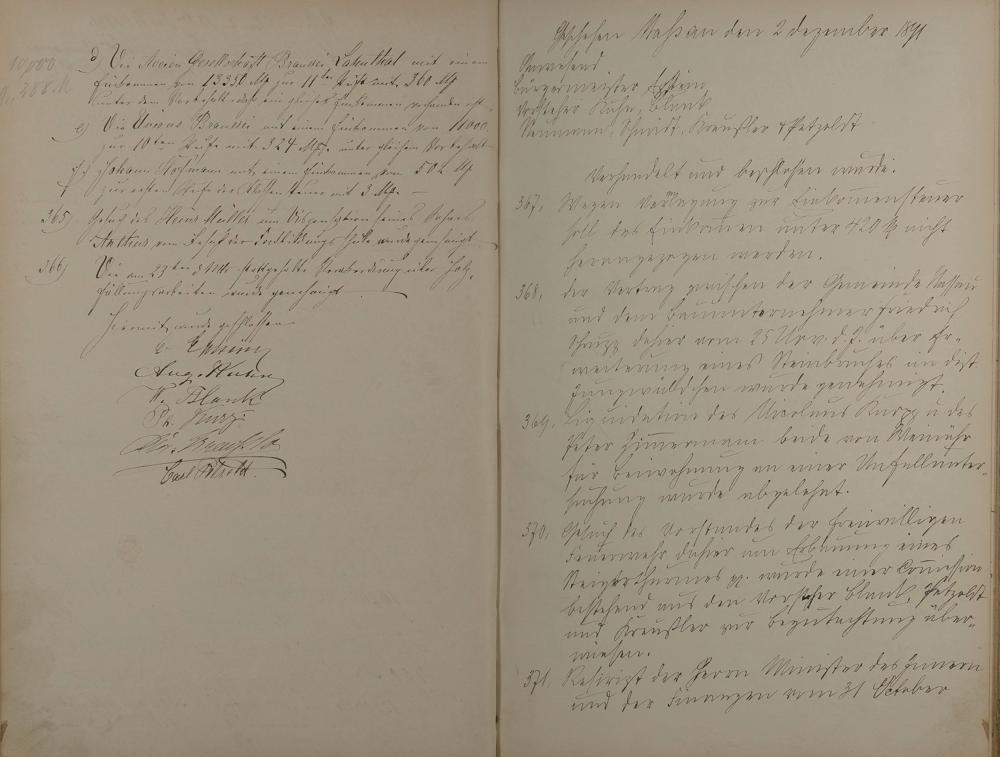 10,000
9,388 M
d) Die Actien Gesellschaft Brauerei Lahnthal mit einem
Einkommen von 13350 M zur 11ten Stufe mit 360 M
unter dem Vorbehalt daß ein gleiches Einkommen vorhanden ist.
e) Die Unions Brauerei mit einem Einkommen von 11000
zur 10ten Stufe mit 324 M unter gleichem Vorbehalt
f) Johann Hofmann mit einem Einkommen von 502 M
zur ersten Stufe der Klassensteuer mit 3 M. —
365) Gesuch des Heinr. Müller um Dispensation seines Sohnes
vom Besuch der Fortbildungsschule wurde genehmigt
366) Die am 23ten d. Mts. stattgehabte Verakkordirung der Holz-
fällungsarbeiten wurde genehmigt
Hiermit wurde geschlossen
Aug. Kuhn
W. Blank
Ph.
Carl Petzoldt.
Geschehen Nassau den 2 Dezember 1891
Anwesend
Bürgermeister
Vorsteher Kuhn, Blank
Schmidt, Kreußler & Petzoldt
Verhandelt und beschlossen wurde.
367, Wegen Veranlagung zur Einkommensteuer
soll das Einkommen unter 420 M nicht
herangezogen werden.
368, Der Vertrag zwischen der Gemeinde Nassau
und dem Bauunternehmer Friedrich
Schrupp dahier vom 25 Nov. d. J. über Er-
weiterung eines Steinbruches im Dist.
Jungwäldchen wurde genehmigt.
369, Liquidation des Nicolaus Knopp u. des
Peter Zimmermann beide von Weinähr
für Beiwohnung an einer Unfallunter-
suchung wurde abgelehnt.
370, Gesuch des Vorstandes der freiwilligen
Feuerwehr dahier um Erbauung eines
Steigerthurmes pp. wurde einer Commission
bestehend aus den Vorsteher Blank, Petzoldt
und Kreußler zur Begutachtung über-
wiesen.
371, Rescript der Herrn Minister des Innern
und der Finanzen vom 31 October